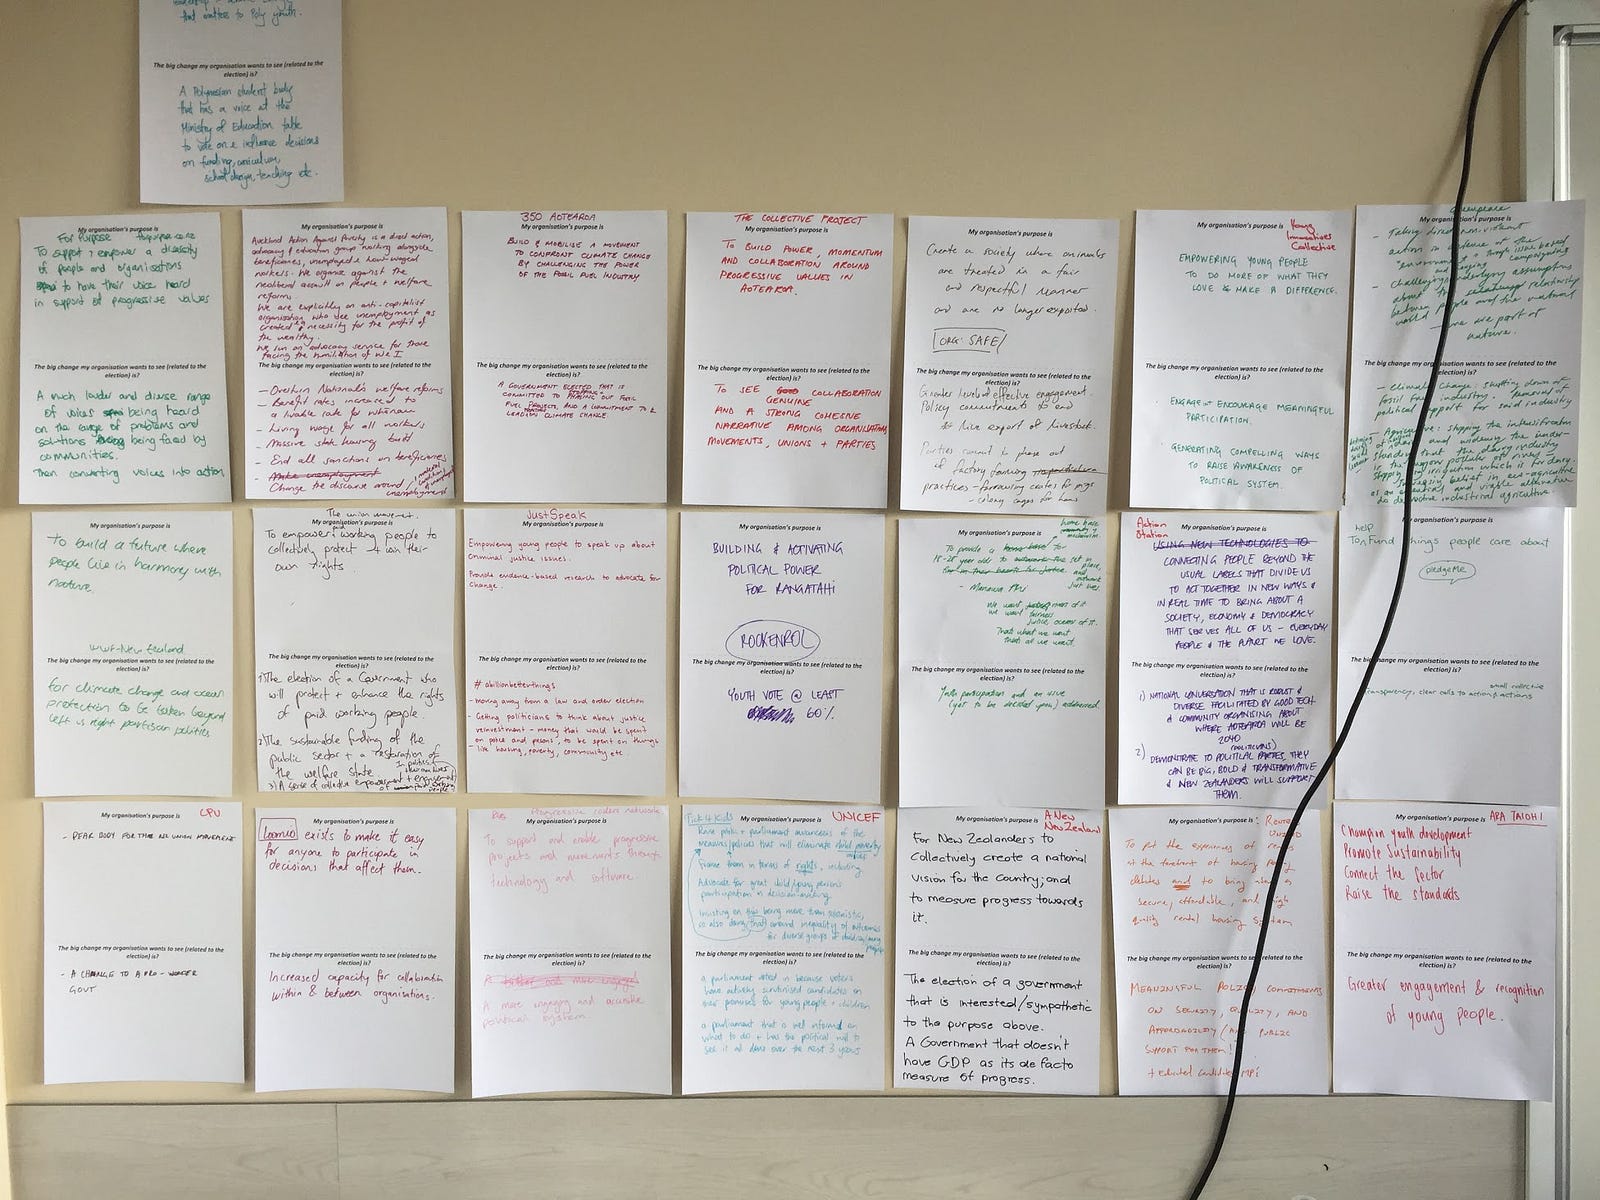 that matters to Poly youth.
The big change my organisation wants to see (related to the
election) is?
A Polynesian student body
that has a voice at the
Ministry of Education table
to vote on & influence decisions
on funding, curriculum,
school design, teaching etc.
For Purpose
My organisation's purpose is
To support + empower a diversity
of people and organisations
to have their voice heard
in support of progressive values
The big change my organisation wants to see (related to the
election) is?
A much louder and diverse range
of voices being heard
on the range of problems and
solutions being faced by
communities.
Then converting voices into action
My organisation's purpose is
Auckland Action Against Poverty is a direct action,
advocacy & education group working alongside
beneficiaries, unemployed & low waged
workers. We organise against the
neoliberal assault on people + welfare
reforms.
We are explicitly an anti-capitalist
organisation who see unemployment as
created necessity for the profit of
the wealthy.
We run an advocacy service for those
facing the humiliation of
The big change my organisation wants to see (related to the
election) is?
- Overturn National's welfare reforms
- Benefit rates increased to
a livable rate for
- Living wage for all workers
- Massive state housing built
- End all sanctions on beneficiaries
- Make unemployment
Change the discourse around
unemployment
350 AOTEAROA
My organisation's purpose is
BUILD & MOBILISE A MOVEMENT
TO CONFRONT CLIMATE CHANGE
BY CHALLENGING THE POWER
OF THE FOSSIL FUEL INDUSTRY
The big change my organisation wants to see (related to the
election) is?
A GOVERNMENT ELECTED THAT IS
COMMITTED TO PHASING OUT FOSSIL
FUEL PROJECTS, AND A COMMITMENT TO
CLIMATE CHANGE
THE COLLECTIVE PROJECT
My organisation's purpose is
TO BUILD POWER, MOMENTUM
AND COLLABORATION AROUND
PROGRESSIVE VALUES IN
AOTEAROA.
The big change my organisation wants to see (related to the
election) is?
TO SEE GOOD COLLABORATION
GENUINE
AND A STRONG COHESIVE
NARRATIVE AMONG ORGANISATIONS,
MOVEMENTS, UNIONS + PARTIES
My organisation's purpose is
Create a society where animals
are treated in a fair
and respectful manner
and are no longer exported.
ORG: SAFE
The big change my organisation wants to see (related to the
election) is?
Greater level of effective engagement.
Policy commitments to end
live export of livestock.
Parties commit to phase out
of factory farming
practices - farrowing crates for pigs
- colony cages for hens
My organisation's purpose is
Young
Innovators
Collective
EMPOWERING YOUNG PEOPLE
TO DO MORE OF WHAT THEY
LOVE & MAKE A DIFFERENCE.
The big change my organisation wants to see (related to the
election) is?
ENGAGE & ENCOURAGE MEANINGFUL
PARTICIPATION.
GENERATING COMPELLING WAYS
TO RAISE AWARENESS OF
POLITICAL SYSTEM.
Greenpeace
My organisation's purpose is
- Taking direct non-violent
action in defence of the
environment + through issue based
campaigning
- challenging underlying assumptions
about the relationship
between people and the natural
world
- we are part of
nature.
The big change my organisation wants to see (related to the
election) is?
- Climate Change: shutting down of
fossil fuel industry. Removal of
political support for said industry
- Agriculture: stopping the intensification
of and widening the under-
standing that the dairy industry
is the major polluter of rivers -
stopping irrigation which is for dairy.
increasing belief in eco-agriculture
as an essential and viable alternative
to destructive industrial agriculture.
My organisation's purpose is
To build a future where
people live in harmony with
nature.
WWF-New Zealand
The big change my organisation wants to see (related to the
election) is?
for climate change and ocean
protection to be taken beyond
left vs right partisan politics
The union movement.
My organisation's purpose is
To empower paid working people to
collectively protect + own their
own rights.
The big change my organisation wants to see (related to the
election) is?
1) The election of a Government who
will protect + enhance the rights
of paid working people.
2) The sustainable funding of the
public sector + a restoration of
the welfare state
3) A sense of collective empowerment + engagement
JustSpeak
My organisation's purpose is
Empowering young people to speak up about
criminal justice issues.
Provide evidence-based research to advocate for
change.
The big change my organisation wants to see (related to the
election) is?
# abillionbetterthings
- moving away from a law and order election
- Getting politicians to think about justice
reinvestment - money that would be spent
on police and prisons, to be spent on things
like housing, poverty, community etc
My organisation's purpose is
BUILDING & ACTIVATING
POLITICAL POWER
FOR RANGATAHI
ROCKENROL
The big change my organisation wants to see (related to the
election) is?
YOUTH VOTE @ LEAST
60%
My organisation's purpose is
home base
To provide a
We want
Thats what we want
thats all we want.
The big change my organisation wants to see (related to the
election) is?
Youth participation and an issue
(yet to be decided upon) addressed.
Action
Station
My organisation's purpose is
USING NEW TECHNOLOGIES TO
CONNECTING PEOPLE BEYOND THE
USUAL LABELS THAT DIVIDE US
TO ACT TOGETHER IN NEW WAYS &
IN REAL TIME TO BRING ABOUT A
SOCIETY, ECONOMY & DEMOCRACY
THAT SERVES ALL OF US - EVERYDAY
PEOPLE & THE PLANET WE LOVE.
The big change my organisation wants to see (related to the
election) is?
1) NATIONAL CONVERSATION THAT IS ROBUST &
DIVERSE FACILITATED BY GOOD TECH
& COMMUNITY ORGANISING ABOUT
WHERE AOTEAROA WILL BE
2040
(POLITICIANS)
2) DEMONSTRATE TO POLITICAL PARTIES THEY
CAN BE BIG, BOLD & TRANSFORMATIVE
& NEW ZEALANDERS WILL SUPPORT
THEM.
My organisation's purpose is
help
To Fund things people care about
pledgeMe
The big change my organisation wants to see (related to the
election) is?
small collective
Transparency, clear calls to action actions
My organisation's purpose is
CPU
- PEAK BODY FOR THE NZ UNION MOVEMENT
The big change my organisation wants to see (related to the
election) is?
- A CHANGE TO A PRO-WORKER
GOVT
My organisation's purpose is
Loomio exists to make it easy
for anyone to participate in
decisions that affect them.
The big change my organisation wants to see (related to the
election) is?
Increased capacity for collaboration
within & between organisations.
Progressive coders network
My organisation's purpose is
To support and enable progressive
projects and movements through
technology and software.
The big change my organisation wants to see (related to the
election) is?
A more engaging and accessible
political system.
Tick 4 Kids
UNICEF
My organisation's purpose is
Raise public + parliament awareness of the
measures/policies that will eliminate child poverty
Frame them in terms of rights, including
Advocate for great child/young persons
participation in decision-making
The big change my organisation wants to see (related to the
election) is?
a parliament voted in because voters
have actively scrutinised candidates on
their promises for young people + children
a parliament that is well informed on
what to do + has the political will to
see it all done over the next 3 years
A New
New Zealand
My organisation's purpose is
For New Zealanders to
Collectively create a national
vision for the country; and
to measure progress towards
it.
The big change my organisation wants to see (related to the
election) is?
The election of a government
that is interested/sympathetic
to the purpose above.
A Government that doesn't
have GDP as its de facto
measure of progress.
My organisation's purpose is
Renters
United
To put the experiences of renters
at the forefront of housing policy
debates and to bring about a
secure, affordable, and high
quality rental housing system
The big change my organisation wants to see (related to the
election) is?
MEANINGFUL POLICY COMMITMENTS
ON SECURITY, QUALITY, AND
AFFORDABILITY (AND PUBLIC
SUPPORT FOR THEM)
+ educated candidates/MPs
My organisation's purpose is
ARA TAIOHI
Champion youth development
Promote Sustainability
Connect the Sector
Raise the standards
The big change my organisation wants to see (related to the
election) is?
Greater engagement & recognition
of young people.